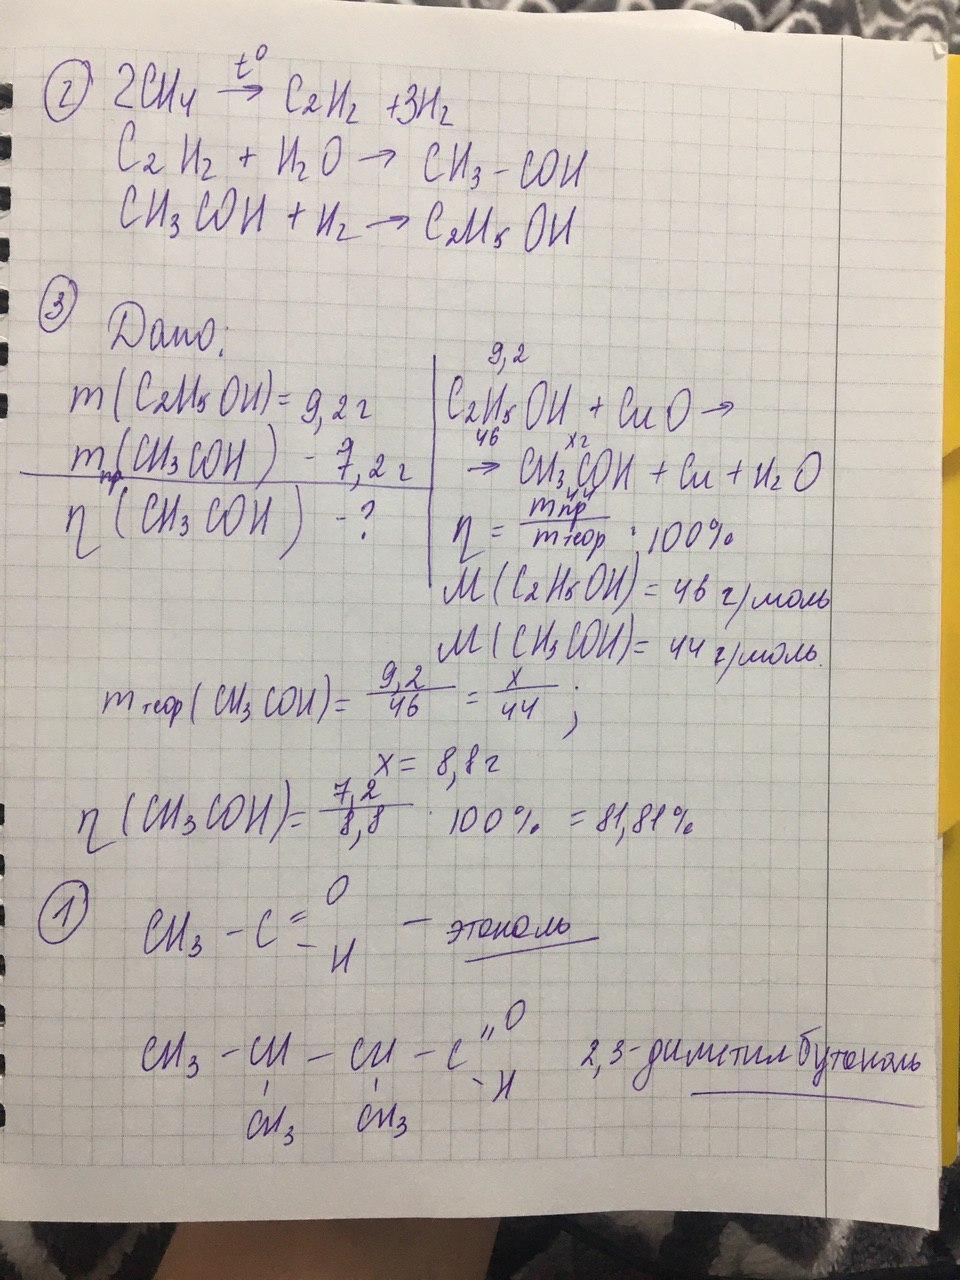 ② 2CH4 t° → C2H2 + 3H2
C2H2 + H2O → CH3 - COH
CH3COH + H2 → C2H5OH
③
Дано:
m(C2H5OH) = 9,2 г
mпр(CH3COH) - 7,2 г
η(CH3COH) - ?
9,2
C2H5OH + CuO →
46 xг
→ CH3COH + Cu + H2O
44
η = mпр / mтеор · 100%
M(C2H5OH) = 46 г/моль
M(CH3COH) = 44 г/моль.
mтеор(CH3COH) = 9,2 / 46 = x / 44 ;
x = 8,8 г
η(CH3COH) = 7,2 / 8,8 · 100% = 81,81%
①
O
CH3 - C = - этаналь
- H
O
CH3 - CH - CH - C = 2,3-диметилбутаналь
- H
CH3 CH3